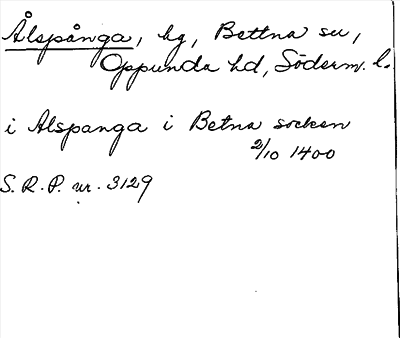 Ålspånga, bg, Bettna su,
Oppunda hd, Söderm. l.
i Alspanga i Betna socken
2/10 1400
S. R. P. nr. 3129